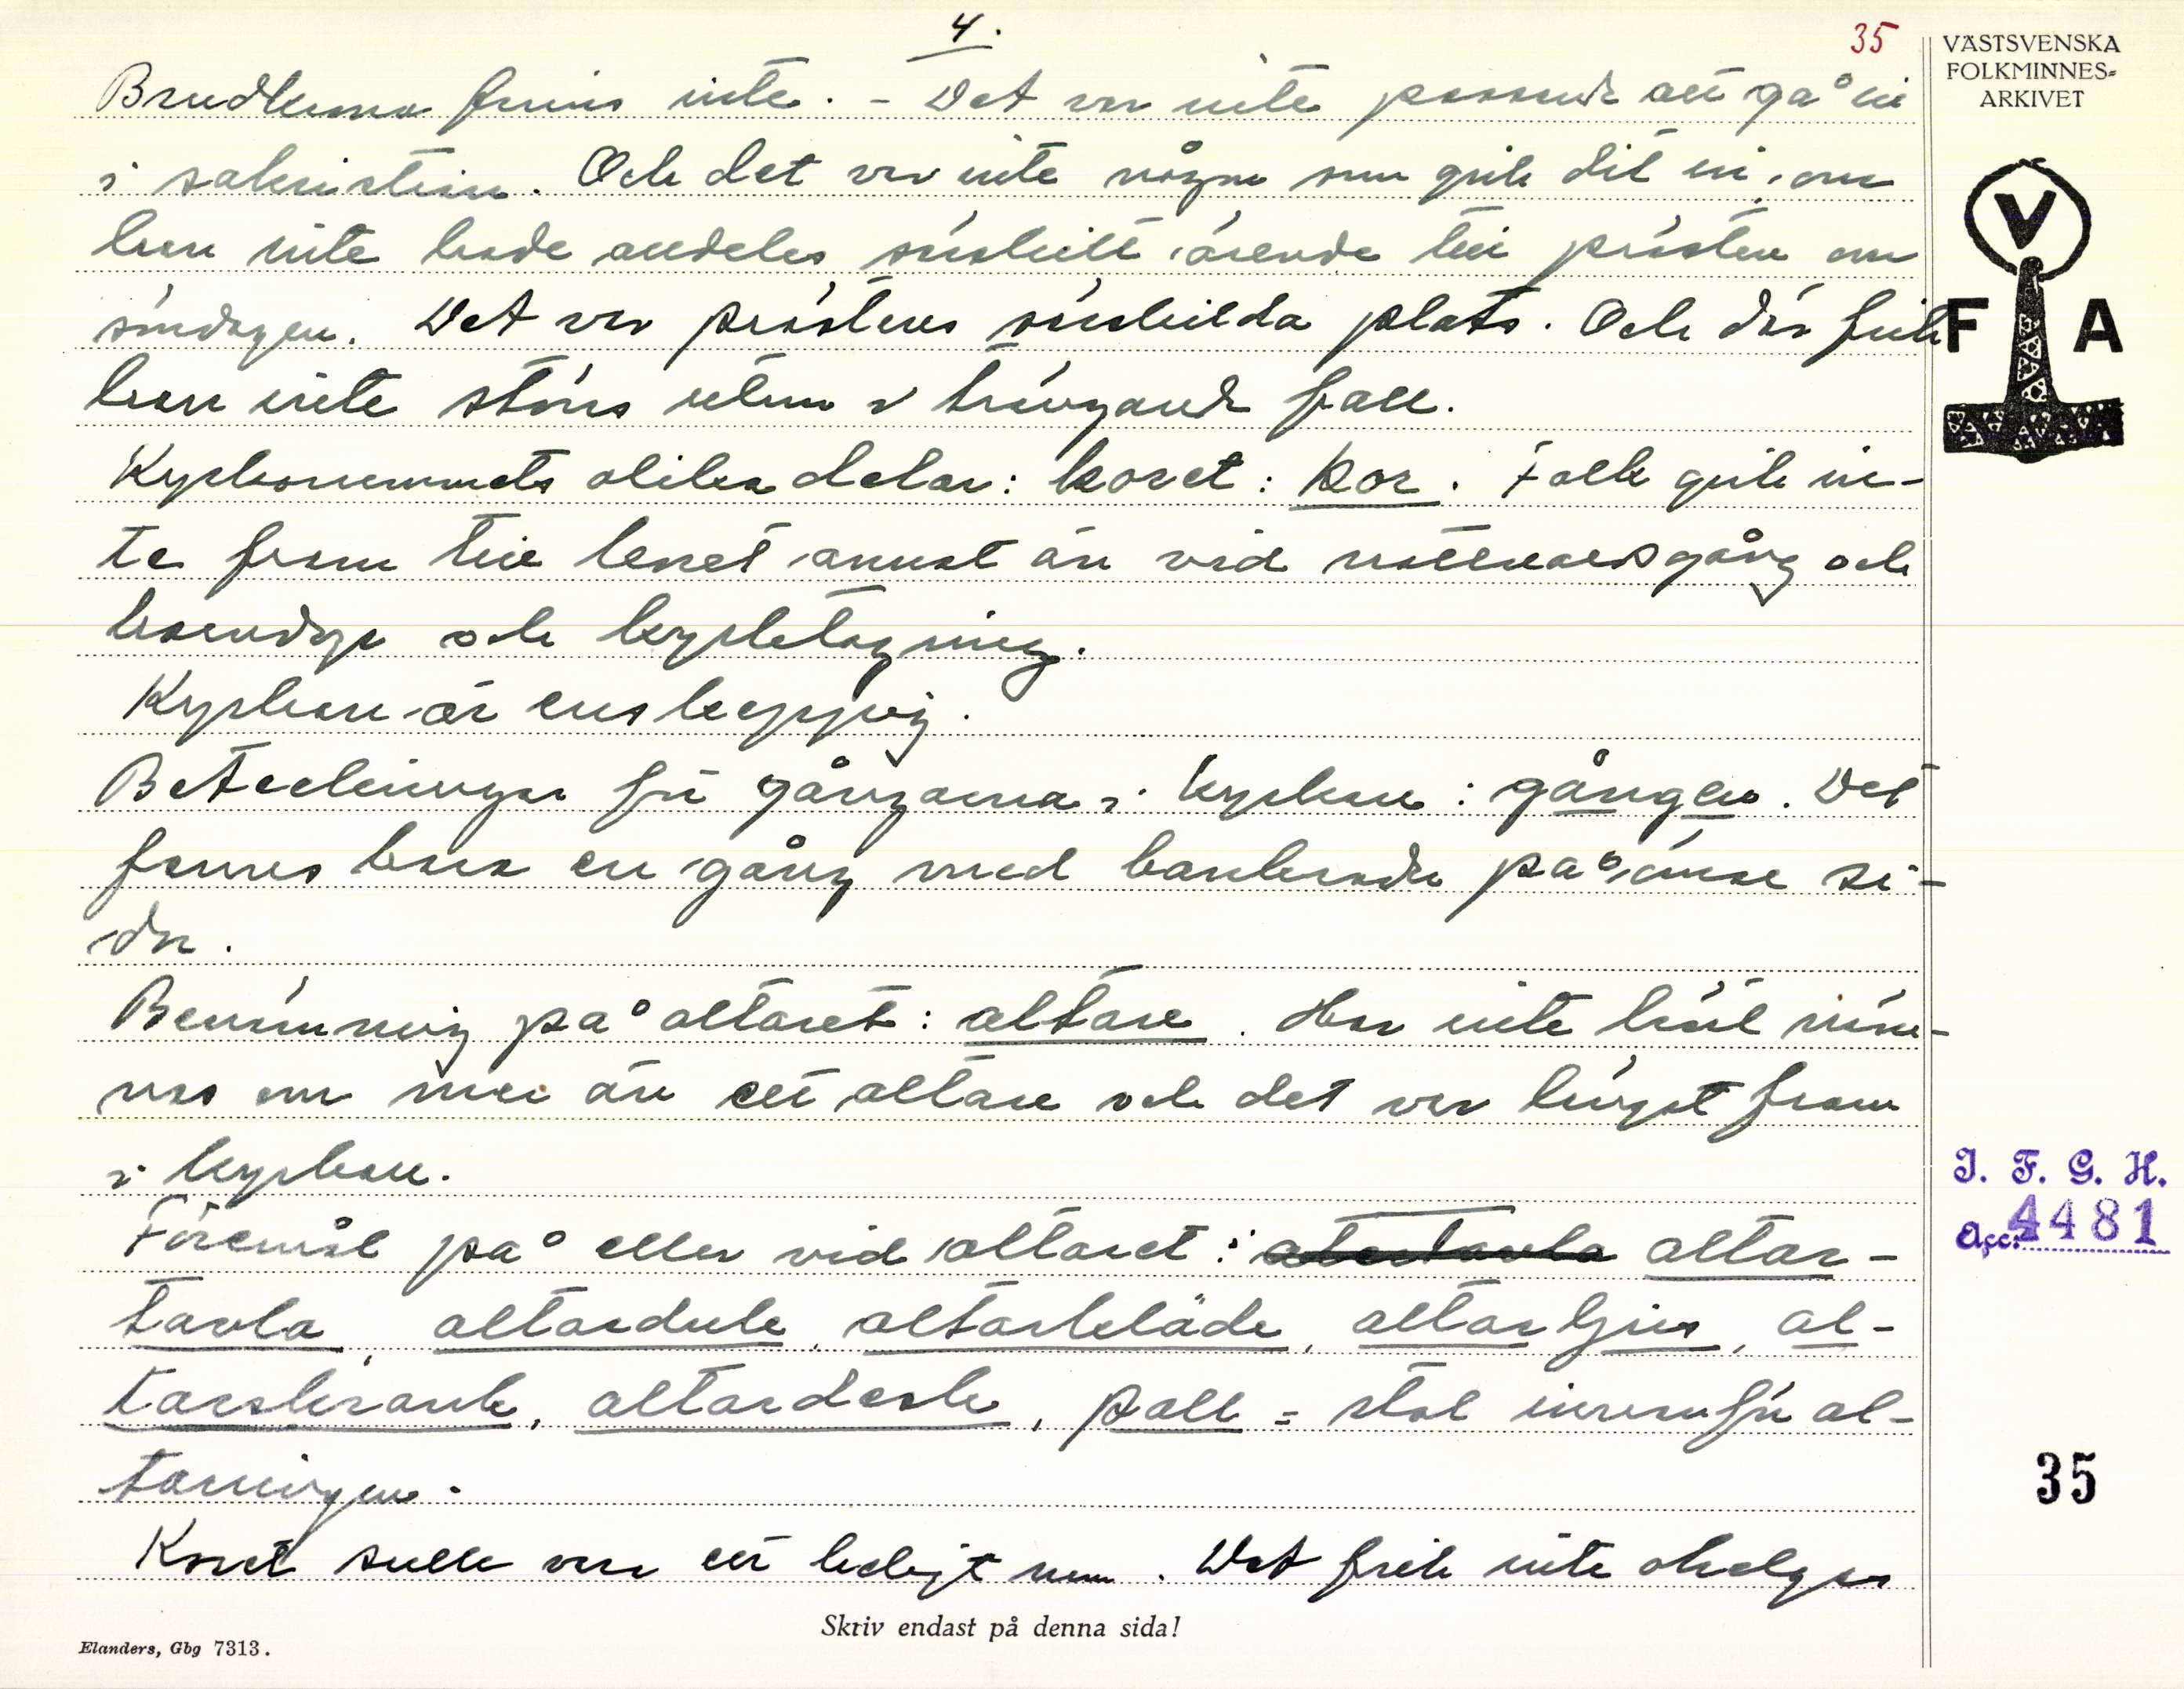 4.
35
VÄSTSVENSKA
FOLKMINNES-
ARKIVET
Brudkrona finns inte. - Det var inte passande att gå in
i sakristian. Och det var inte någon som gick dit in, om
han inte hade alldeles särskilt ärende till prästen om
söndagen. Det var prästens särskilda plats. Och där fick
V
F A
han inte störas utom i trängande fall.
Kyrkorummets olika delar: koret: kor. Folk gick in-
te fram till koret annat än vid nattvardsgång och
brudvigs och kyrktagning.
Kyrkan är enskeppig.
Beteckningar för gångarna i kyrkan: gången. Det
fanns bara en gång med bänkrader på ömse si-
dor.
Benämning på altaret: altare. Har inte hört näm-
nas om mer än ett altare och det var längst fram
i kyrkan.
Föremål på eller vid altaret: altar-
tavla, altarduk, altarkläde, altarljus, al-
tarskrank, altardisk, pall = stol innanför al-
tarringen.
Koret skulle vara ett heligt rum. Det fick inte ohelgas
I. F. G. H.
Acc. 4481
35
Skriv endast på denna sida!
Elanders, Gbg 7313.